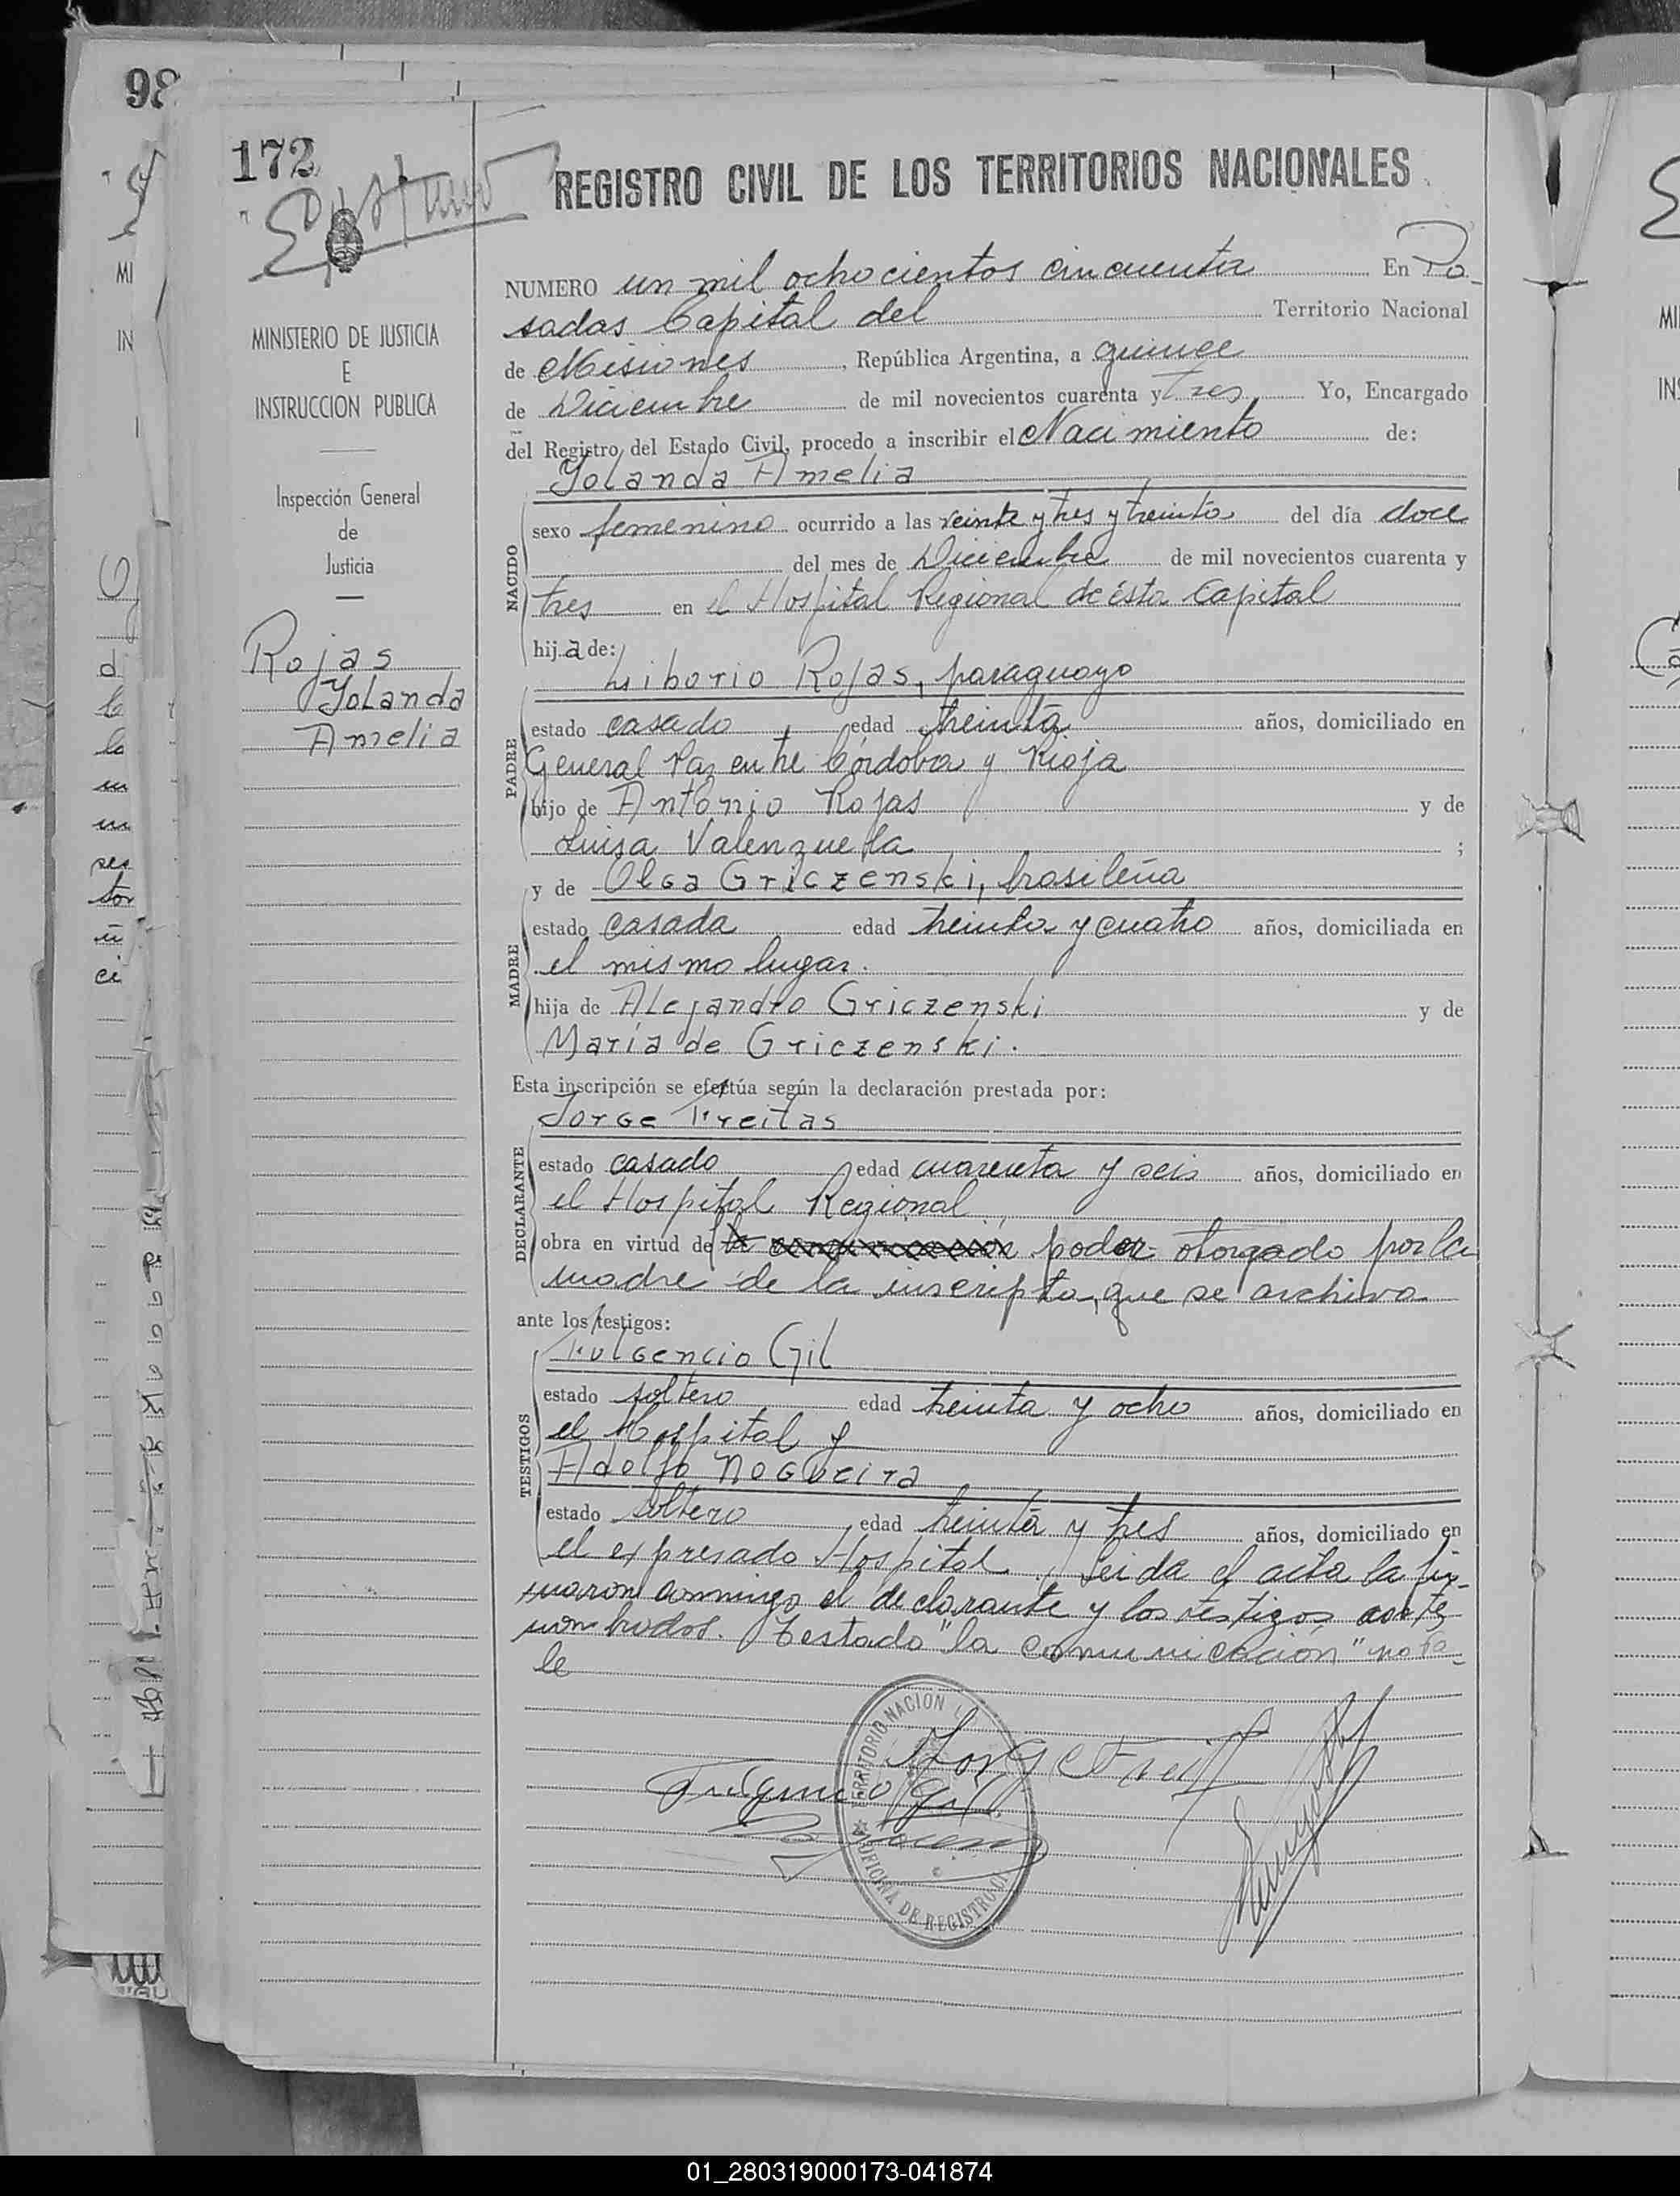 98
172
REGISTRO CIVIL DE LOS TERRITORIOS NACIONALES
MINISTERIO DE JUSTICIA
E
INSTRUCCION PUBLICA
Inspección General
de
Justicia
Rojas
Yolanda
Amelia
NUMERO un mil ochocientos cincuenta En Po-
sadas Capital del Territorio Nacional
de Misiones, República Argentina, a quince
de Diciembre de mil novecientos cuarenta y Tres Yo, Encargado
del Registro del Estado Civil, procedo a inscribir el Nacimiento de:
Yolanda Amelia
NACIDO
sexo femenino ocurrido a las veinte y tres y treinta del día doce
del mes de Diciembre de mil novecientos cuarenta y
tres en el Hospital Regional de ésta Capital
hija de:
Liborio Rojas, paraguayo
PADRE
estado casado edad treinta años, domiciliado en
General Paz entre Córdoba y Rioja
hijo de Antonio Rojas y de
Luisa Valenzuela ;
y de Olga Griczenski, brasileña
MADRE
estado casada edad treinta y cuatro años, domiciliada en
el mismo lugar.
hija de Alejandro Griczenski y de
María de Griczenski.
Esta inscripción se efectúa según la declaración prestada por:
Jorge Freitas
DECLARANTE
estado casado edad cuarenta y seis años, domiciliado en
el Hospital Regional
obra en virtud de la comunicación poder otorgado por la
madre de la inscripta, que se archiva
ante los testigos:
Fulgencio Gil
TESTIGOS
estado soltero edad treinta y ocho años, domiciliado en
el Hospital y
Adolfo Nogueira
estado soltero edad treinta y tres años, domiciliado en
el expresado Hospital. Leida el acta la fir-
maron conmigo el declarante y los testigos ante
nombrados. Testado "la comunicación" no va-
le
TERRITORIO NACIONAL
OFICINA DE REGISTRO
01_280319000173-041874